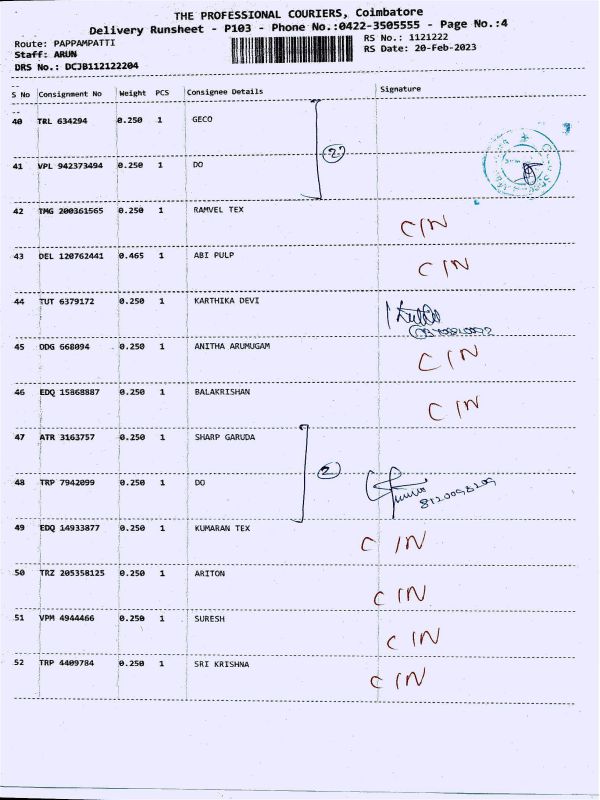 THE PROFESSIONAL COURIERS, Coimbatore
Delivery Runsheet - P103 - Phone No.:0422-3505555 - Page No.:4
Route: PAPPAMPATTI RS No.: 1121222
Staff: ARUN RS Date: 20-Feb-2023
DRS No.: DCJB112122204
S No Consignment No Weight PCS Consignee Details Signature
40 TRL 634294 0.250 1 GECO
2
41 VPL 942373494 0.250 1 DO
42 TMG 200361565 0.250 1 RAMVEL TEX CIN
43 DEL 120762441 0.465 1 ABI PULP CIN
44 TUT 6379172 0.250 1 KARTHIKA DEVI
45 DDG 668094 0.250 1 ANITHA ARUMUGAM CIN
46 EDQ 15868887 0.250 1 BALAKRISHAN CIN
47 ATR 3163757 0.250 1 SHARP GARUDA
2
48 TRP 7942099 0.250 1 DO
49 EDQ 14933877 0.250 1 KUMARAN TEX CIN
50 TRZ 205358125 0.250 1 ARITON CIN
51 VPM 4944466 0.250 1 SURESH CIN
52 TRP 4409784 0.250 1 SRI KRISHNA CIN